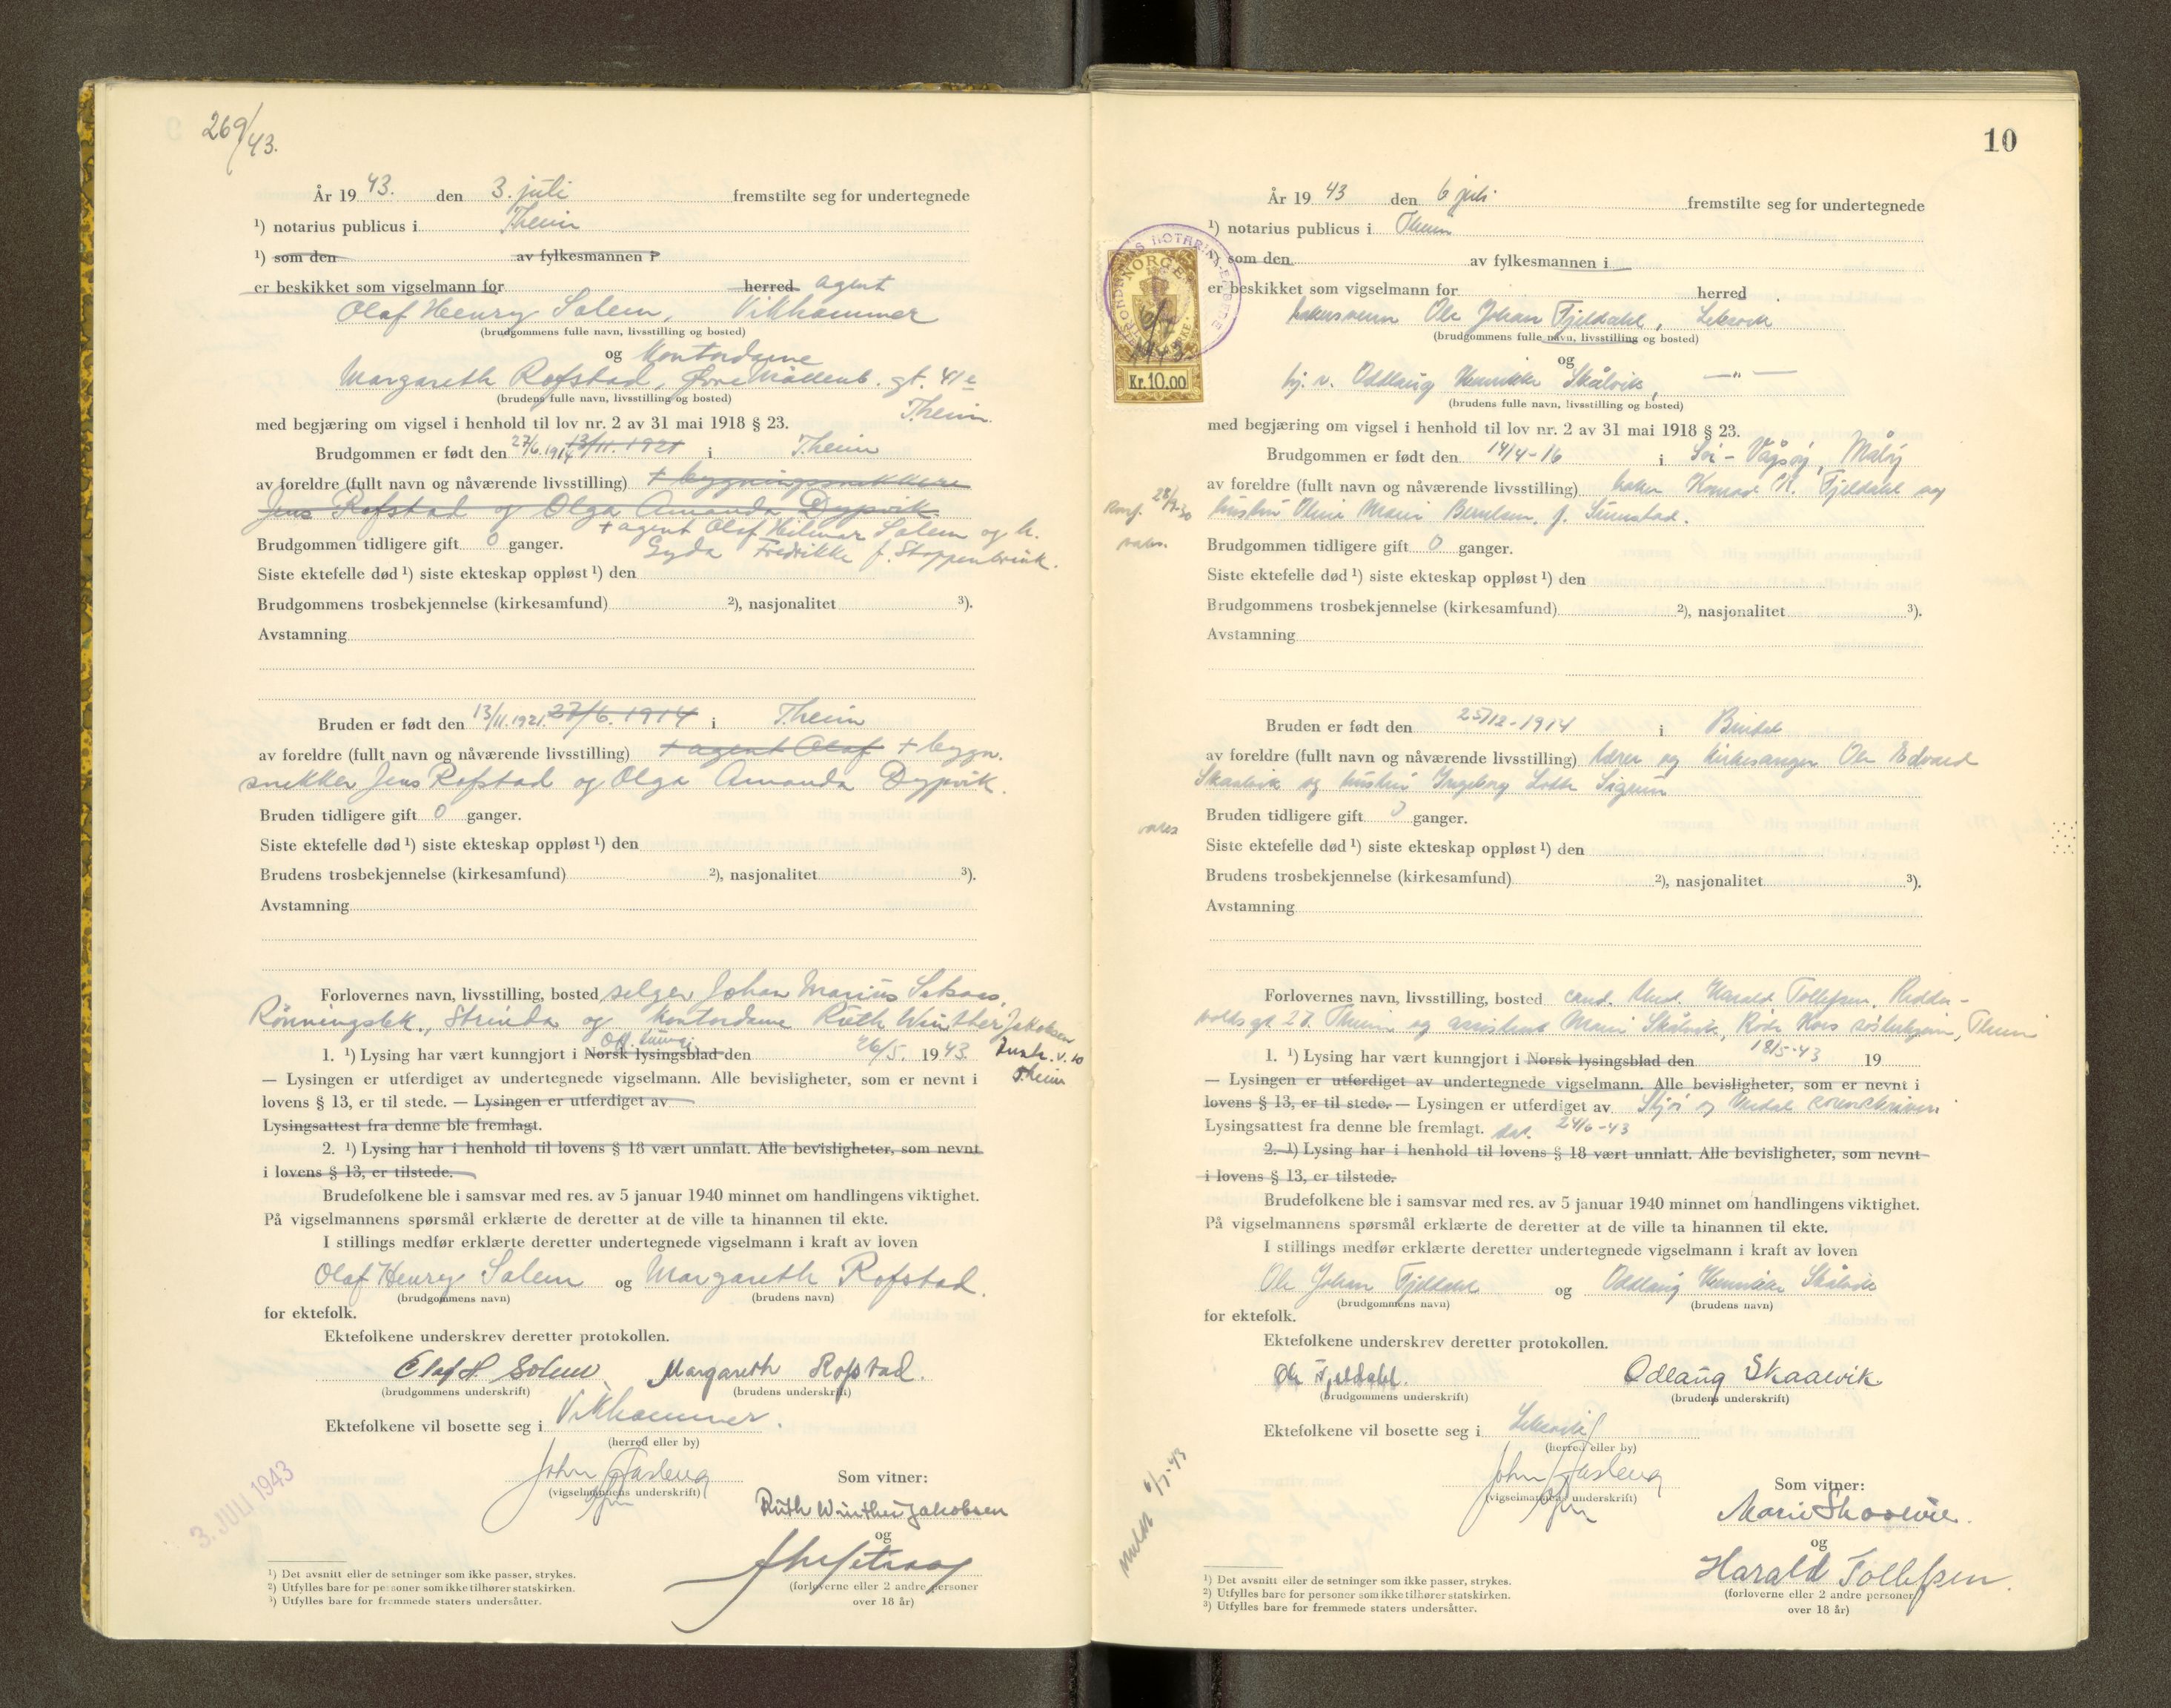 269/43.
År 19 43. den 3. juli fremstilte seg for undertegnede
1) notarius publicus i Theim
1) som den av fylkesmannen i
er beskikket som vigselmann for herred agent
Olaf Henry Solem, Vikhammer
(brudgommens fulle navn, livsstilling og bosted)
og Kontordame
Margareth Rofstad, Øvre Møllenb. gt. 41e
(brudens fulle navn, livsstilling og bosted)
Theim.
med begjæring om vigsel i henhold til lov nr. 2 av 31 mai 1918 § 23.
Brudgommen er født den 27/6.1914 13/11.1921 i Theim
av foreldre (fullt navn og nåværende livsstilling) + bygningssnekker
Jens Rofstad og Olga Amanda Dypvik
+ agent Olaf Hilmar Solem og h.
Brudgommen tidligere gift 0 ganger. Gyda Fredrikke f. Stoppenbrink.
Siste ektefelle død 1) siste ekteskap oppløst 1) den
Brudgommens trosbekjennelse (kirkesamfund) 2), nasjonalitet 3).
Avstamning
Bruden er født den 13/11.1921. 27/6.1914 i Theim
av foreldre (fullt navn og nåværende livsstilling) + agent Olaf + bygn.
snekker Jens Rofstad og Olga Amanda Dypvik.
Bruden tidligere gift 0 ganger.
Siste ektefelle død 1) siste ekteskap oppløst 1) den
Brudens trosbekjennelse (kirkesamfund) 2), nasjonalitet 3).
Avstamning
Forlovernes navn, livsstilling, bosted selger Johan Marius
Rönningsbk., Strinda og Kontordame Ruth Winther Jakobsen
1. 1) Lysing har vært kunngjort i Norsk lysingsblad den 26/5. 1943. v. 10
Theim
— Lysingen er utferdiget av undertegnede vigselmann. Alle bevisligheter, som er nevnt i
lovens § 13, er til stede. — Lysingen er utferdiget av
Lysingsattest fra denne ble fremlagt.
2. 1) Lysing har i henhold til lovens § 18 vært unnlatt. Alle bevisligheter, som nevnt
i lovens § 13, er tilstede.
Brudefolkene ble i samsvar med res. av 5 januar 1940 minnet om handlingens viktighet.
På vigselmannens spørsmål erklærte de deretter at de ville ta hinannen til ekte.
I stillings medfør erklærte deretter undertegnede vigselmann i kraft av loven
Olaf Henry Solem og Margareth Rofstad.
(brudgommens navn) (brudens navn)
for ektefolk.
Ektefolkene underskrev deretter protokollen.
Olaf H. Solem Margareth Rofstad.
(brudgommens underskrift) (brudens underskrift)
Ektefolkene vil bosette seg i Vikhammer.
(herred eller by)
3. JULI 1943
John Aasleng
(vigselmannens underskrift)
Som vitner:
Ruth Winther Jakobsen
og
(forloverne eller 2 andre personer
over 18 år)
1) Det avsnitt eller de setninger som ikke passer, strykes.
2) Utfylles bare for personer som ikke tilhører statskirken.
3) Utfylles bare for fremmede staters undersåtter.
10
År 19 43 den 6 juli fremstilte seg for undertegnede
1) notarius publicus i Theim
1) som den av fylkesmannen i
er beskikket som vigselmann for herred
NORGE
6/7
1943
Kr. 10.00
bakersvenn Ole Johan Fjeldahl, Leksvik
(brudgommens fulle navn, livsstilling og bosted)
og
hj. v. Oddlaug Henrikke Skålvik, — " —
(brudens fulle navn, livsstilling og bosted)
med begjæring om vigsel i henhold til lov nr. 2 av 31 mai 1918 § 23.
Brudgommen er født den 14/4-16 i Sør-Vågsøy, Måløy
av foreldre (fullt navn og nåværende livsstilling) baker Konrad K. Fjeldahl og
hustru Oline Marie Berntsen, f.
Brudgommen tidligere gift 0 ganger.
Siste ektefelle død 1) siste ekteskap oppløst 1) den
Brudgommens trosbekjennelse (kirkesamfund) 2), nasjonalitet 3).
Avstamning
Bruden er født den 25/12-1914 i Bindal
av foreldre (fullt navn og nåværende livsstilling) lærer og kirkesanger Ole Edvard
Skaalvik og hustru Ingeborg Lotte Sigrun
Bruden tidligere gift 0 ganger.
Siste ektefelle død 1) siste ekteskap oppløst 1) den
Brudens trosbekjennelse (kirkesamfund) 2), nasjonalitet 3).
Avstamning
Forlovernes navn, livsstilling, bosted cand. Harald Tollefsen,
gt. 27. Theim og assistent Marie Skålvik, Røde Kors søsterhjem, Theim
1. 1) Lysing har vært kunngjort i Norsk lysingsblad den 18/5-43 19
— Lysingen er utferdiget av undertegnede vigselmann. Alle bevisligheter, som er nevnt i
lovens § 13, er til stede. — Lysingen er utferdiget av Stjør og Verdal sorenskriveri
Lysingsattest fra denne ble fremlagt. dat. 24/6-43
2. 1) Lysing har i henhold til lovens § 18 vært unnlatt. Alle bevisligheter, som nevnt
i lovens § 13, er tilstede.
Brudefolkene ble i samsvar med res. av 5 januar 1940 minnet om handlingens viktighet.
På vigselmannens spørsmål erklærte de deretter at de ville ta hinannen til ekte.
I stillings medfør erklærte deretter undertegnede vigselmann i kraft av loven
Ole Johan Fjeldahl og Oddlaug Henrikke Skålvik
(brudgommens navn) (brudens navn)
for ektefolk.
Ektefolkene underskrev deretter protokollen.
Ole Fjeldahl. Odlaug Skaalvik
(brudgommens underskrift) (brudens underskrift)
Ektefolkene vil bosette seg i Leksvik
(herred eller by)
meldt 6/7-43
John Aasleng
(vigselmannens underskrift)
Som vitner:
Marie Skaalvik.
og
Harald Tollefsen.
(forloverne eller 2 andre personer
over 18 år)
1) Det avsnitt eller de setninger som ikke passer, strykes.
2) Utfylles bare for personer som ikke tilhører statskirken.
3) Utfylles bare for fremmede staters undersåtter.